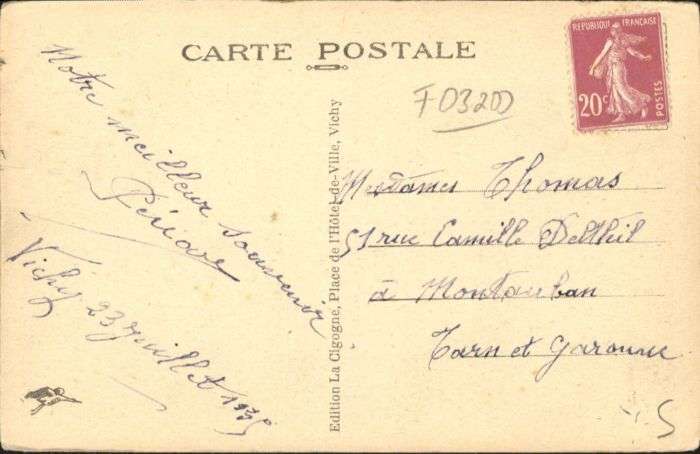 CARTE POSTALE
REPUBLIQUE FRANÇAISE
20c
POSTES
F 03200
Notre meilleur souvenir
Vichy 23 juillet 1935
Edition La Cigogne, Place de l'Hôtel-de-Ville, Vichy
Mesdames Thomas
51 rue Camille Delthil
à Montauban
Tarn et Garonne